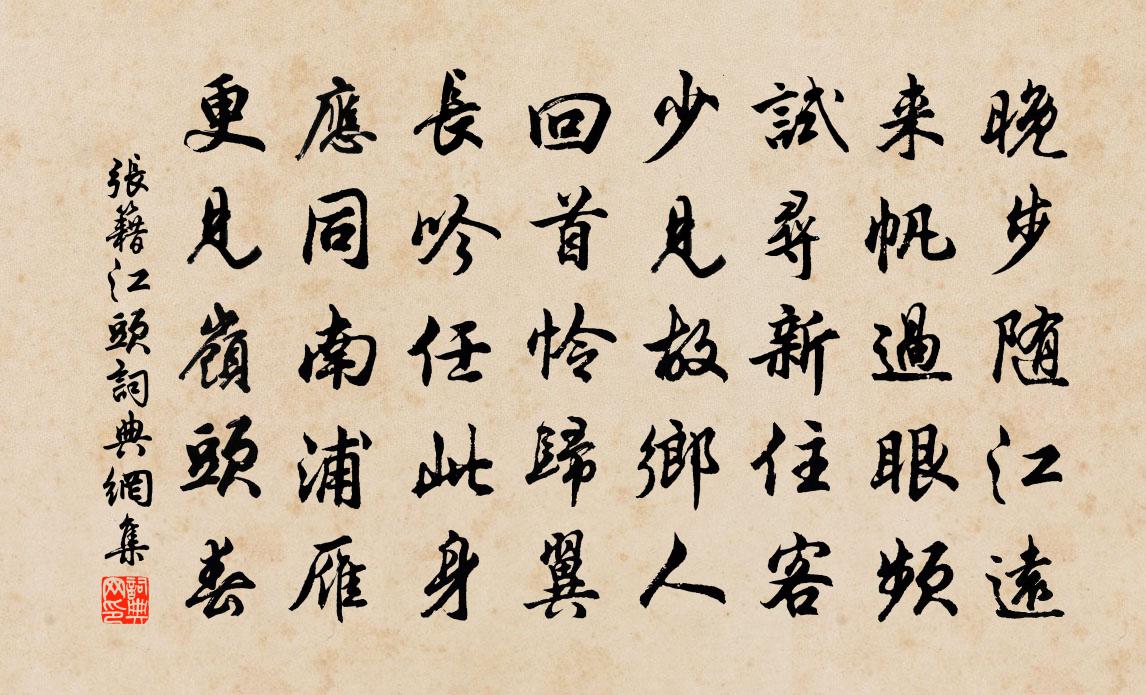 晚步随江遠
来帆過眼頻
試尋新住客
少見故鄉人
回首怜歸翼
長吟任此身
應同南浦雁
更見嶺頭春
張籍江頭詞典網集
詞典网印